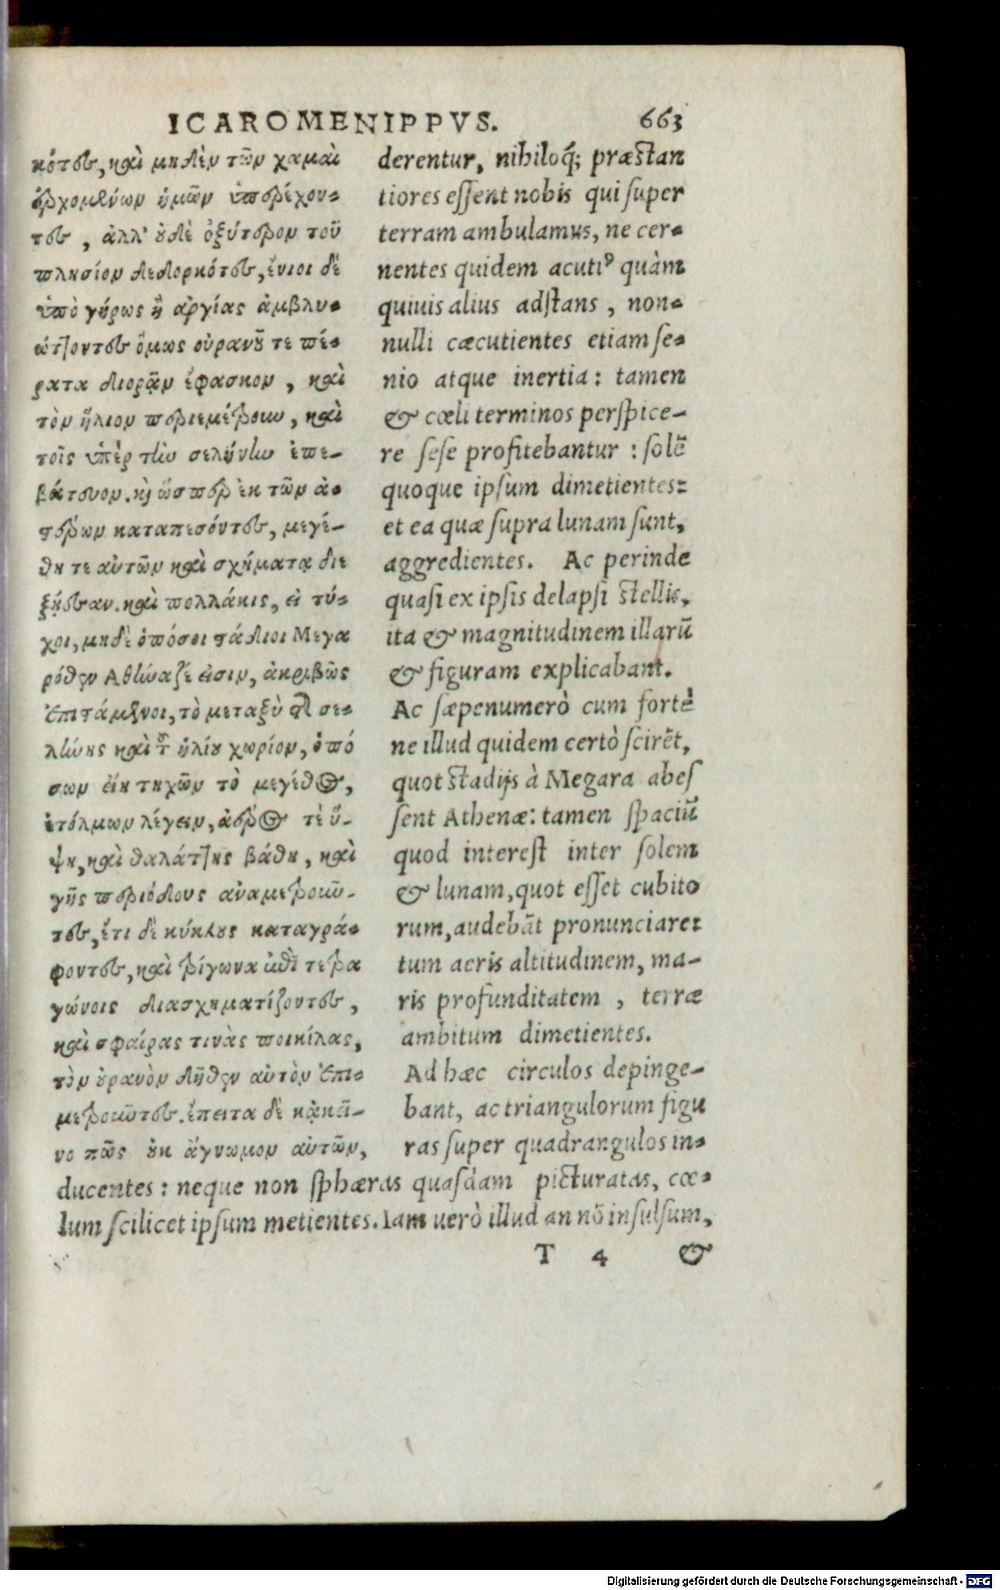 ICAROMENIPPVS. 663
κότες, καὶ μηδὲν τῶν χαμαὶ
ἐρχομένων ἡμῶν ὑπερέχον-
τες, ἀλλ' οὐδὲ ὀξύτερον τοῦ
πλησίον δεδορκότες, ἔνιοι δὲ
ὑπὸ γήρως ἢ ἀργίας ἀμβλυ-
ώττοντες ὅμως οὐρανοῦ τε πέ-
ρατα διορᾷν ἔφασκον, καὶ
τὸν ἥλιον περιεμέτρουν, καὶ
τοῖς ὑπὲρ τὴν σελήνην ἐπε-
βάτευον. καὶ ὥσπερ ἐκ τῶν ἀ-
στέρων καταπεσόντες, μεγέ-
θη τε αὐτῶν καὶ σχήματα διε
ξῄεσαν. καὶ πολλάκις, εἰ τύ-
χοι, μηδὲ ὁπόσοι στάδιοι Μεγα
ρόθεν Αθήναζέ εἰσιν, ἀκριβῶς
ἐπιστάμενοι, τὸ μεταξὺ τῆς σε-
λήνης καὶ τοῦ ἡλίου χωρίον, ὁπό
σων εἴη πηχῶν τὸ μέγεθος,
ἐτόλμων λέγειν, ἀέρος τὲ ὕ-
ψη, καὶ θαλάττης βάθη, καὶ
γῆς περιόδους ἀναμετροῦν-
τες, ἔτι δὲ κύκλους καταγρά-
φοντες, καὶ τρίγωνα ἐπὶ τετρα
γώνοις διασχηματίζοντες,
καὶ σφαίρας τινὰς ποικίλας,
τὸν οὐρανὸν δῆθεν αὐτὸν ἐπι-
μετροῦντες. ἔπειτα δὲ κἀκεῖ-
νο πῶς οὐκ ἄγνωμον αὐτῶν,
derentur, nihiloq́; præstan
tiores essent nobis qui super
terram ambulamus, ne cer-
nentes quidem acutiꝰ quàm
quiuis alius adstans, non-
nulli cæcutientes etiam se-
nio atque inertia: tamen
& cœli terminos perspice-
re sese profitebantur: solē
quoque ipsum dimetientes:
et ea quæ supra lunam sunt,
aggredientes. Ac perinde
quasi ex ipsis delapsi stellis,
ita & magnitudinem illarū
& figuram explicabant.
Ac sæpenumerò cum fortè
ne illud quidem certò scirēt,
quot stadijs à Megara abes
sent Athenæ: tamen spaciū
quod interest inter solem
& lunam, quot esset cubito
rum, audebāt pronunciare:
tum aeris altitudinem, ma-
ris profunditatem, terræ
ambitum dimetientes.
Ad hæc circulos depinge-
bant, ac triangulorum figu
ras super quadrangulos in-
ducentes: neque non sphæras quasdam picturatas, cœ-
lum scilicet ipsum metientes. Iam uerò illud an nō insulsum,
T 4 &
Digitalisierung gefördert durch die Deutsche Forschungsgemeinschaft - DFG